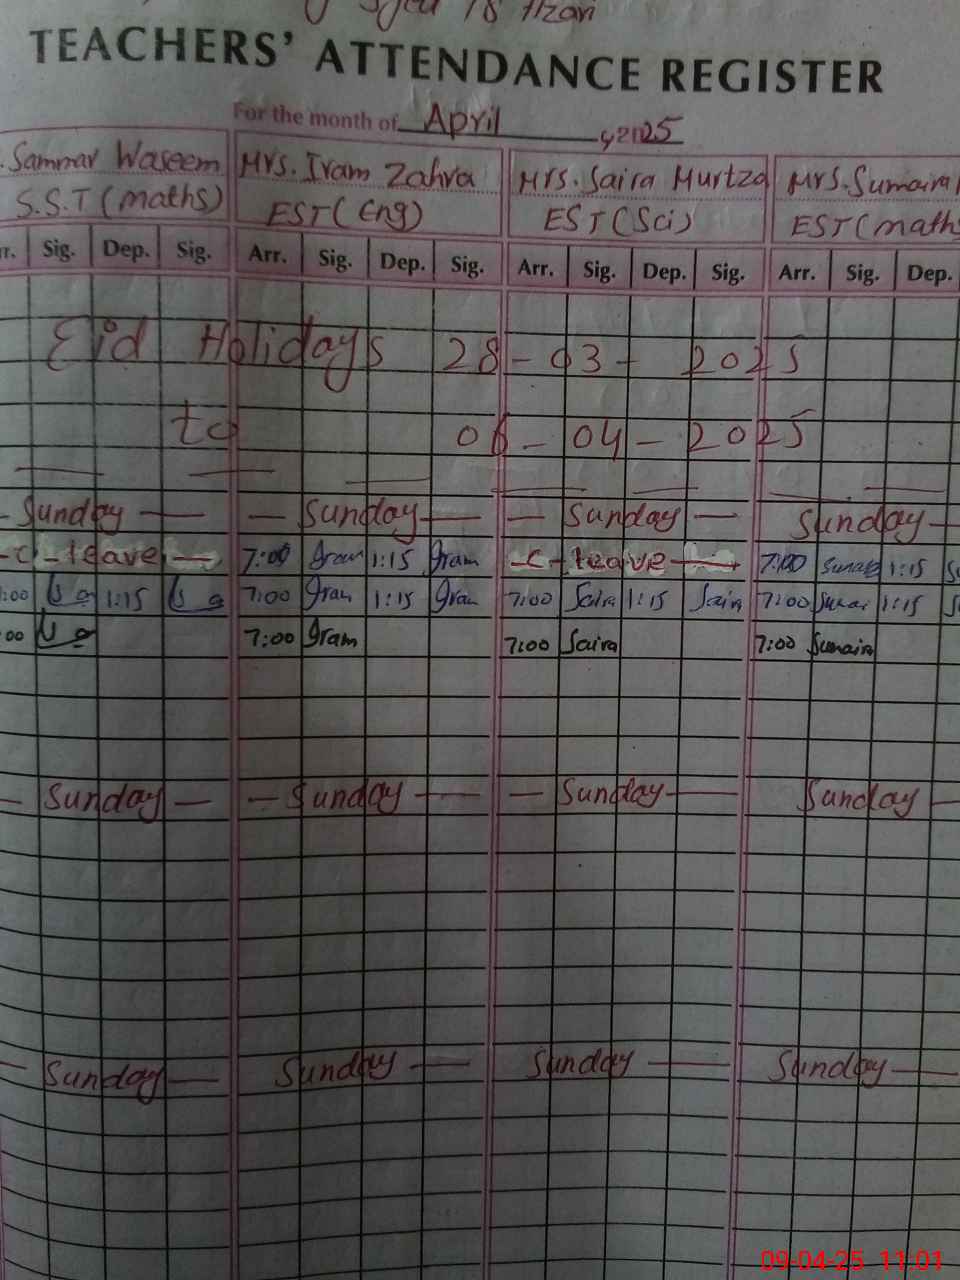 TEACHERS' ATTENDANCE REGISTER
For the month of April 2025
Sammar Waseem Mrs. Iram Zahra Mrs. Saira Murtza Mrs. Sumaira
S.S.T (maths) EST (Eng) EST (Sci) EST (maths
Sig. Dep. Sig. Arr. Sig. Dep. Sig. Arr. Sig. Dep. Sig. Arr. Sig. Dep.
Eid Holidays 28-03-2025
to 06-04-2025
Sunday — — Sunday — — Sunday — Sunday —
-C-leave — 7:00 Iram 1:15 Iram -C-leave — 7:00 Sumaira 1:15
:00 1:15 7:00 Iram 1:15 Iram 7:00 Saira 1:15 Saira 7:00 Sumai 1:15
:00 7:00 Iram 7:00 Saira 7:00 Sumaira
— Sunday — — Sunday — — Sunday — Sunday —
— Sunday — Sunday — Sunday — Sunday —
09-04-25 11:01